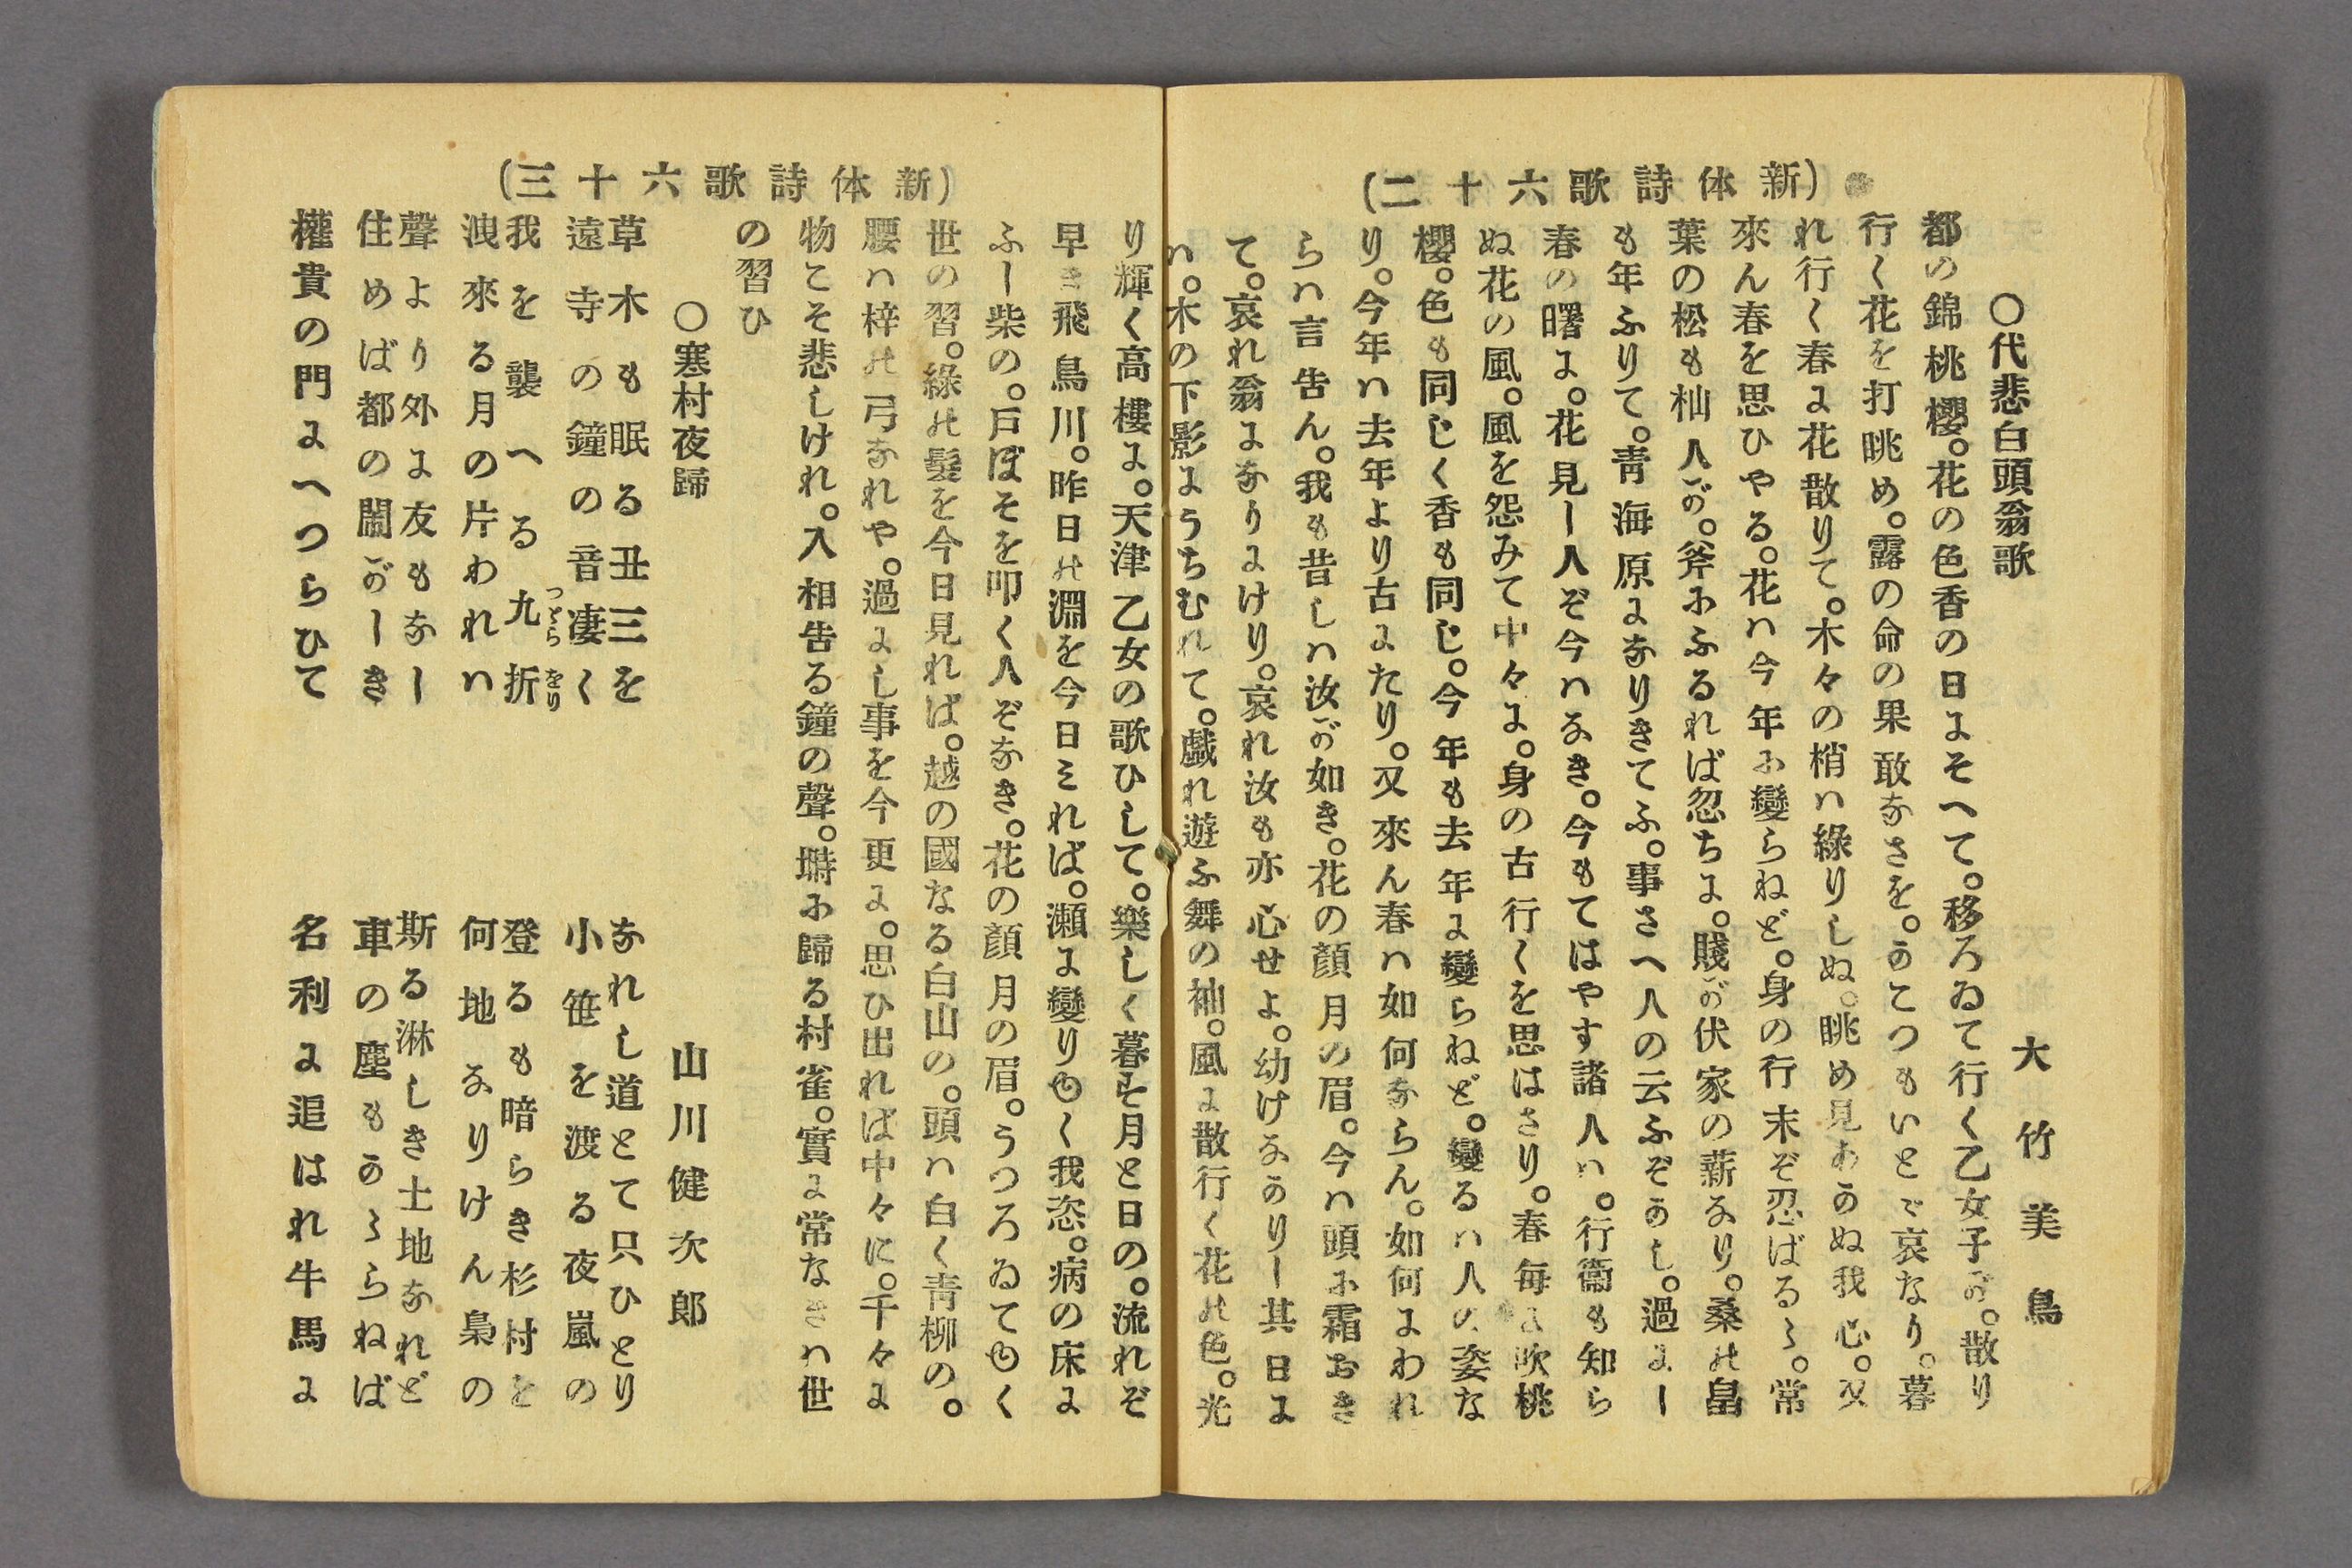 (新体詩歌六十二)
〇代悲白頭翁歌
大竹美鳥
都の錦桃櫻。花の色香の日にそへて。移ろゐて行く乙女子が。散り
行く花を打眺め。露の命の果敢なさを。かこつもいとゞ哀なり。暮
れ行く春に花散りて。木々の梢ハ綠りしぬ。眺め見あかぬ我心。又
來ん春を思ひやる。花ハ今年に變らねど。身の行末ぞ忍ばるゝ。常
葉の松も杣人が。斧にふるれば忽ちに。賤が伏家の薪なり。桑の畠
も年ふりて。靑海原になりきてふ。事さへ人の云ふぞかし。過にし
春の曙に。花見し人ぞ今ハなき。今もてはやす諸人ハ。行衞も知ら
ぬ花の風。風を怨みて中々に。身の古行くを思はさり。春每に吹桃
櫻。色も同じく香も同じ。今年も去年に變らねど。變るハ人の姿な
り。今年ハ去年より古にたり。又來ん春ハ如何ならん。如何にわれ
らハ言吿ん。我も昔しハ汝が如き。花の顔月の眉。今ハ頭に霜おき
て。哀れ翁になりにけり。哀れ汝も亦心せよ。幼けなかりし其日に
ハ。木の下影にうちむれて。戯れ遊ふ舞の袖。風に散行く花の色。光
(新体詩歌六十三)
り輝く高樓に。天津乙女の歌ひして。樂しく暮す月と日の。流れぞ
早き飛鳥川。昨日の淵を今日ミれば。瀬に變りゆく我恣。病の床に
ふし柴の。戸ぼそを叩く人ぞなき。花の顔月の眉。うつろゐてゆく
世の習。綠の髮を今日見れば。越の國なる白山の。頭ハ白く靑柳の。
腰ハ梓の弓なれや。過にし事を今更に。思ひ出れば中々に。千々に
物こそ悲しけれ。入相吿る鐘の聲。塒に歸る村雀。實に常なきハ世
の習ひ
〇寒村夜歸
山川健次郎
草木も眠る丑三を　なれし道とて只ひとり
遠寺の鐘の音凄く　小笹を渡る夜嵐の
我を襲へる九折　登るも暗らき杉村を
つゞらをり
洩來る月の片われハ　何地なりけん梟の
聲より外に友もなし　斯る淋しき土地なれど
住めば都の鬧がしき　車の塵もかゝらねば
權貴の門にへつらひて　名利に追はれ牛馬に